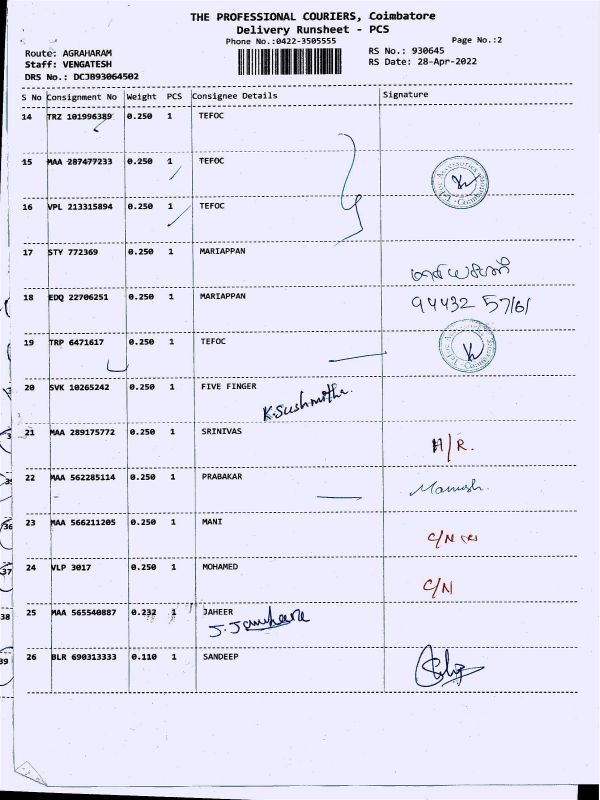 THE PROFESSIONAL COURIERS, Coimbatore
Delivery Runsheet - PCS
Phone No.:0422-3505555
Page No.:2
Route: AGRAHARAM
RS No.: 930645
Staff: VENGATESH
RS Date: 28-Apr-2022
DRS No.: DCJB93064502
S No Consignment No Weight PCS Consignee Details Signature
14 TRZ 101996389 0.250 1 TEFOC
15 MAA 287477233 0.250 1 TEFOC
16 VPL 213315894 0.250 1 TEFOC
17 STY 772369 0.250 1 MARIAPPAN
18 EDQ 22706251 0.250 1 MARIAPPAN
94432 57161
19 TRP 6471617 0.250 1 TEFOC
20 SVK 10265242 0.250 1 FIVE FINGER
K.Sushmitha
21 MAA 289175772 0.250 1 SRINIVAS
H/R.
22 MAA 562285114 0.250 1 PRABAKAR
23 MAA 566211205 0.250 1 MANI
C/N
24 VLP 3017 0.250 1 MOHAMED
C/N
25 MAA 565540887 0.232 1 JAHEER
26 BLR 690313333 0.110 1 SANDEEP
36
37
38
39